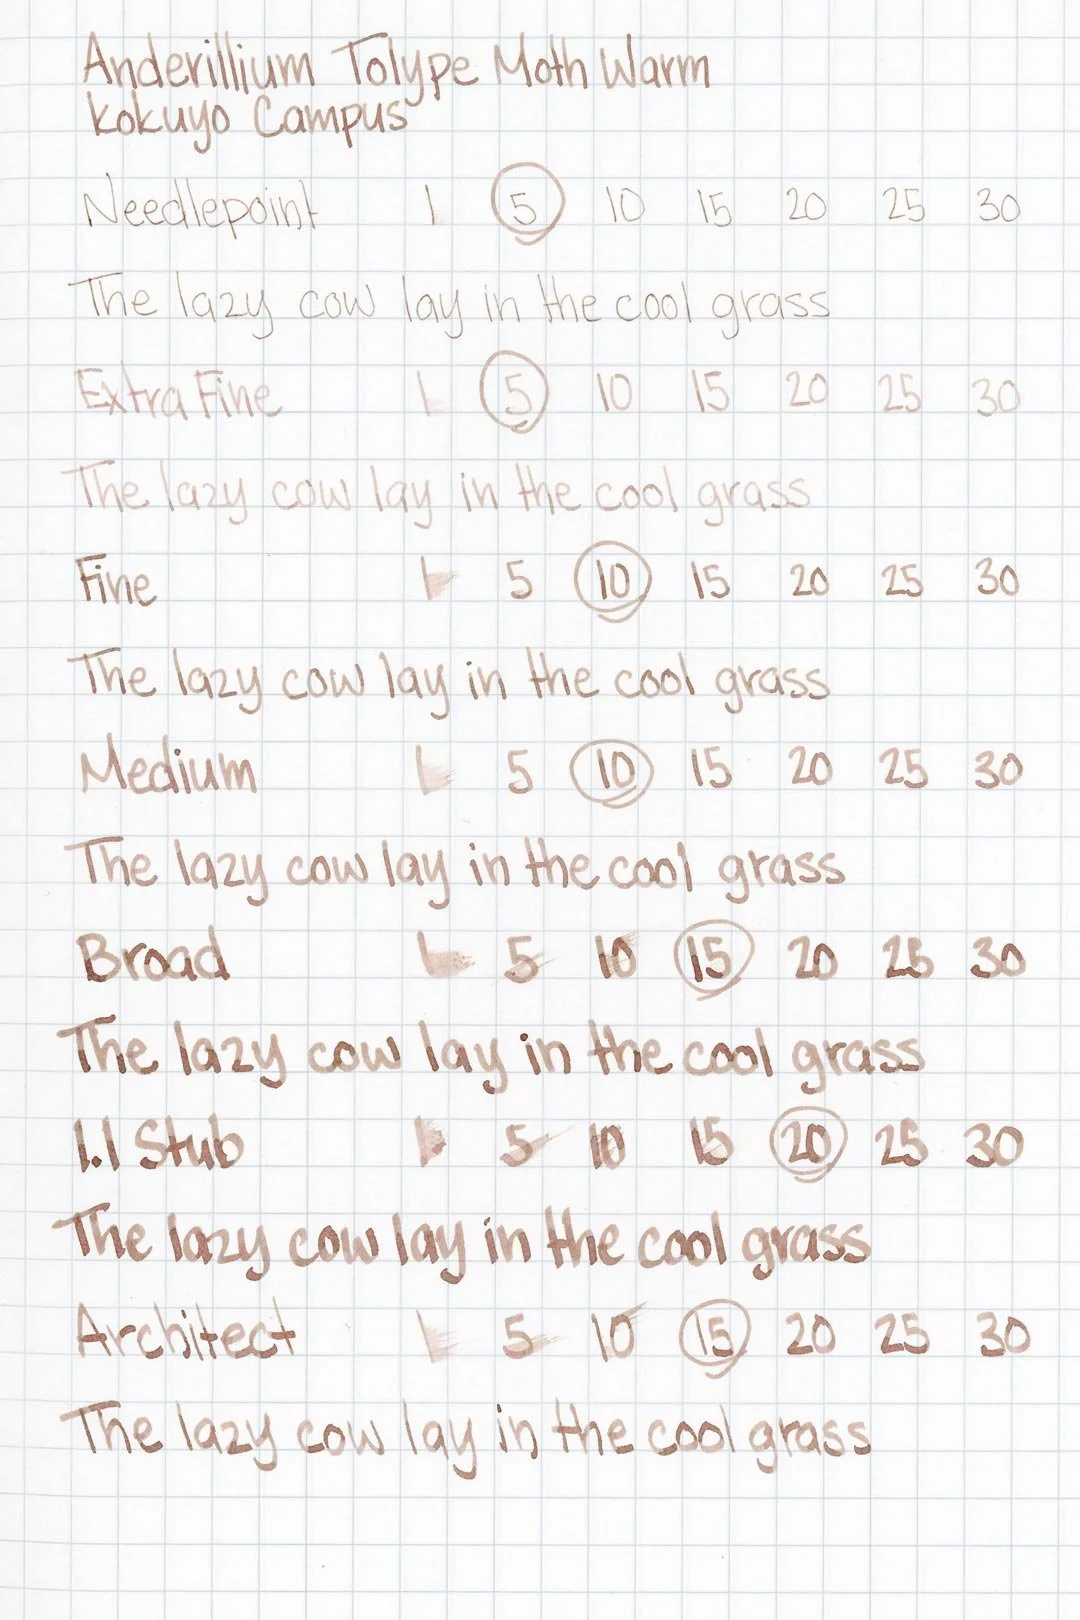 Anderillium Tolype Moth Warm
Kokuyo Campus
Needlepoint 1 5 10 15 20 25 30
The lazy cow lay in the cool grass
Extra Fine 1 5 10 15 20 25 30
The lazy cow lay in the cool grass
Fine 1 5 10 15 20 25 30
The lazy cow lay in the cool grass
Medium 1 5 10 15 20 25 30
The lazy cow lay in the cool grass
Broad 1 5 10 15 20 25 30
The lazy cow lay in the cool grass
1.1 Stub 1 5 10 15 20 25 30
The lazy cow lay in the cool grass
Architect 1 5 10 15 20 25 30
The lazy cow lay in the cool grass